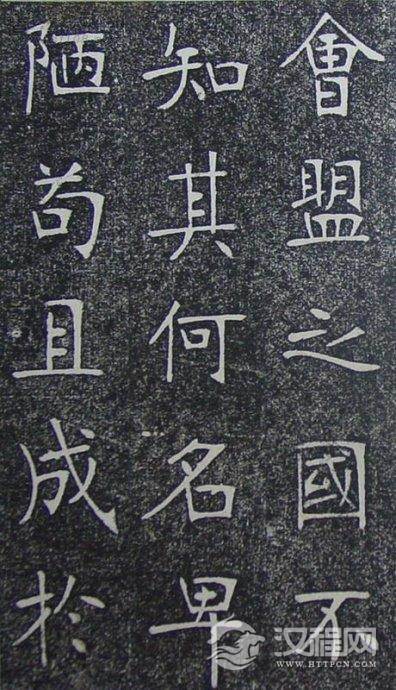 會盟之國不
知其何名卑
陋苟且成於
汉程网
WWW.HTTPCN.COM